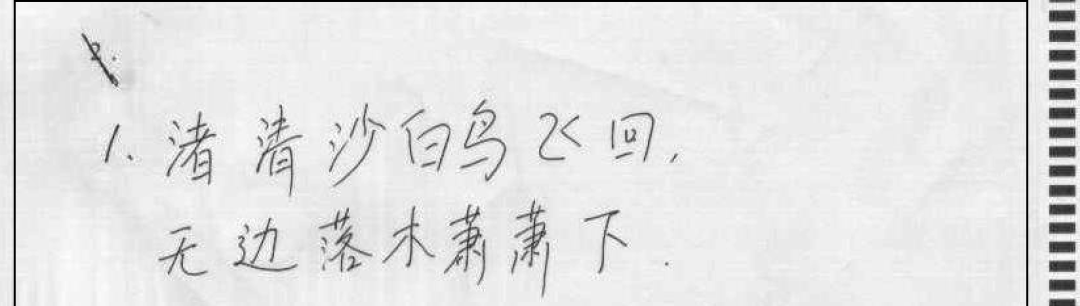 1. 渚清沙白鸟飞回,
无边落木萧萧下.